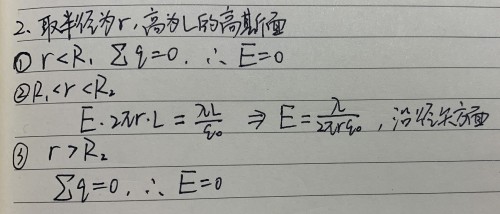 2、取半径为r,高为L的高斯面
① r<R₁ Σq=0, ∴ E=0
② R₁<r<R₂
E·2πr·L = λL/ε₀ ⇒ E = λ/2πrε₀, 沿径矢方面
③ r>R₂
Σq=0, ∴ E=0